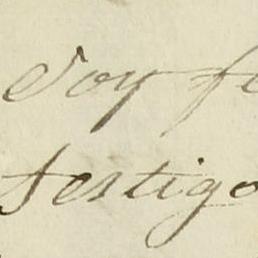 Doy fe
testigo